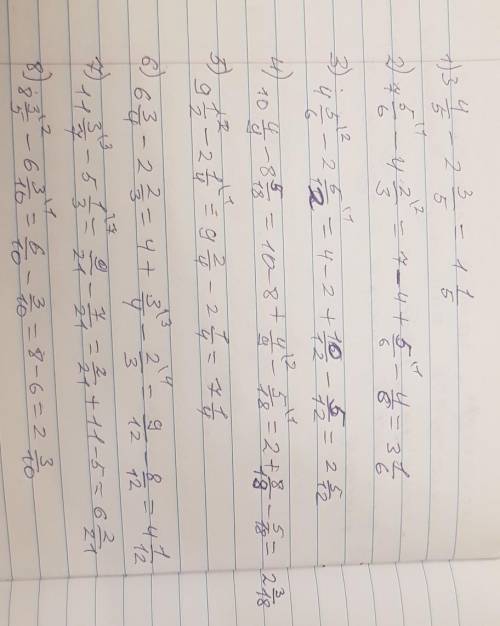 1) 3 4/5 - 2 3/5 = 1 1/5
2) 7 5/6\1 - 4 2/3\2 = 7 - 4 + 5/6\1 - 4/6 = 3 1/6
3) 4 5/6\2 - 2 5/12\1 = 4 - 2 + 10/12 - 5/12 = 2 5/12
4) 10 4/9 - 8 5/18 = 10 - 8 + 4/9\2 - 5/18\1 = 2 + 8/18 - 5/18 = 2 3/18
5) 9 1/2\2 - 2 1/4\1 = 9 2/4 - 2 1/4 = 7 1/4
6) 6 3/4 - 2 2/3 = 4 + 3/4\3 - 2/3\4 = 9/12 - 8/12 = 4 1/12
7) 11 3/7\3 - 5 1/3\7 = 9/21 - 7/21 = 2/21 + 11 - 5 = 6 2/21
8) 8 3/5\2 - 6 3/10\1 = 6/10 - 3/10 = 8 - 6 = 2 3/10